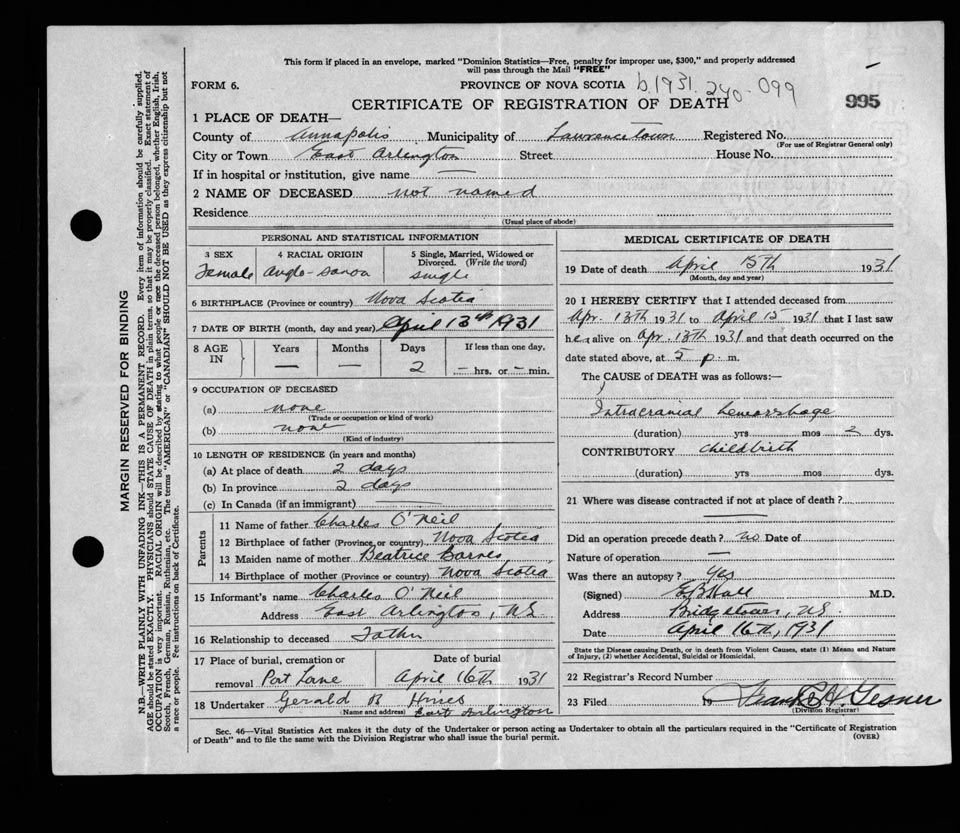 This form if placed in an envelope, marked "Dominion Statistics—Free, penalty for improper use, $300," and properly addressed
will pass through the Mail "FREE"
FORM 6. PROVINCE OF NOVA SCOTIA b.1931. 240-099
CERTIFICATE OF REGISTRATION OF DEATH 995
1 PLACE OF DEATH—
County of Annapolis Municipality of Lawrencetown Registered No.
(For use of Registrar General only)
City or Town East Arlington Street House No.
If in hospital or institution, give name —
2 NAME OF DECEASED not named
Residence
(Usual place of abode)
PERSONAL AND STATISTICAL INFORMATION
3 SEX 4 RACIAL ORIGIN 5 Single, Married, Widowed or
Divorced. (Write the word)
Female Anglo-Saxon single
6 BIRTHPLACE (Province or country) Nova Scotia
7 DATE OF BIRTH (month, day and year) April 13th 1931
8 AGE IN Years Months Days If less than one day.
— — 2 — hrs. or — min.
9 OCCUPATION OF DECEASED
(a) none
(Trade or occupation or kind of work)
(b) none
(Kind of industry)
10 LENGTH OF RESIDENCE (in years and months)
(a) At place of death 2 days
(b) In province 2 days
(c) In Canada (if an immigrant)
Parents
11 Name of father Charles O'Neil
12 Birthplace of father (Province or country) Nova Scotia
13 Maiden name of mother Beatrice Barnes
14 Birthplace of mother (Province or country) Nova Scotia
15 Informant's name Charles O'Neil
Address East Arlington, N.S.
16 Relationship to deceased Father
17 Place of burial, cremation or Date of burial
removal Port Lorne April 16th 1931
18 Undertaker Gerald B Hines
Name and address East Arlington
MEDICAL CERTIFICATE OF DEATH
19 Date of death April 15th 1931
(Month, day and year)
20 I HEREBY CERTIFY that I attended deceased from
Apr. 13th 1931 to April 15 1931 that I last saw
her alive on Apr. 13th 1931 and that death occurred on the
date stated above, at 5 p. m.
The CAUSE of DEATH was as follows:—
Intracranial hemorrhage
(duration) yrs mos 2 dys.
CONTRIBUTORY Childbirth
(duration) yrs mos dys.
21 Where was disease contracted if not at place of death?
—
Did an operation precede death? no Date of
Nature of operation —
Was there an autopsy? Yes
(Signed) Hall M.D.
Address Bridgetown, N.S.
Date April 16th, 1931
State the Disease causing Death, or in death from Violent Causes, state (1) Means and Nature
of Injury, (2) whether Accidental, Suicidal or Homicidal.
22 Registrar's Record Number
23 Filed 19 Gesner
(Division Registrar)
Sec. 46—Vital Statistics Act makes it the duty of the Undertaker or person acting as Undertaker to obtain all the particulars required in the "Certificate of Registration
of Death" and to file the same with the Division Registrar who shall issue the burial permit.
(OVER)
MARGIN RESERVED FOR BINDING
N.B.—WRITE PLAINLY WITH UNFADING INK—THIS IS A PERMANENT RECORD. Every item of information should be carefully supplied.
AGE should be stated EXACTLY. PHYSICIANS should STATE CAUSE OF DEATH in plain terms, so that it may be properly classified. Exact statement of
OCCUPATION is very important. RACIAL ORIGIN will be described by stating to what people or race the deceased person belonged, whether English, Irish,
Scotch, French, German, Russian, Ruthenian, etc. The terms "AMERICAN" or "CANADIAN" SHOULD NOT BE USED as they express citizenship but not
a race or people. Fee instructions on back of Certificate.